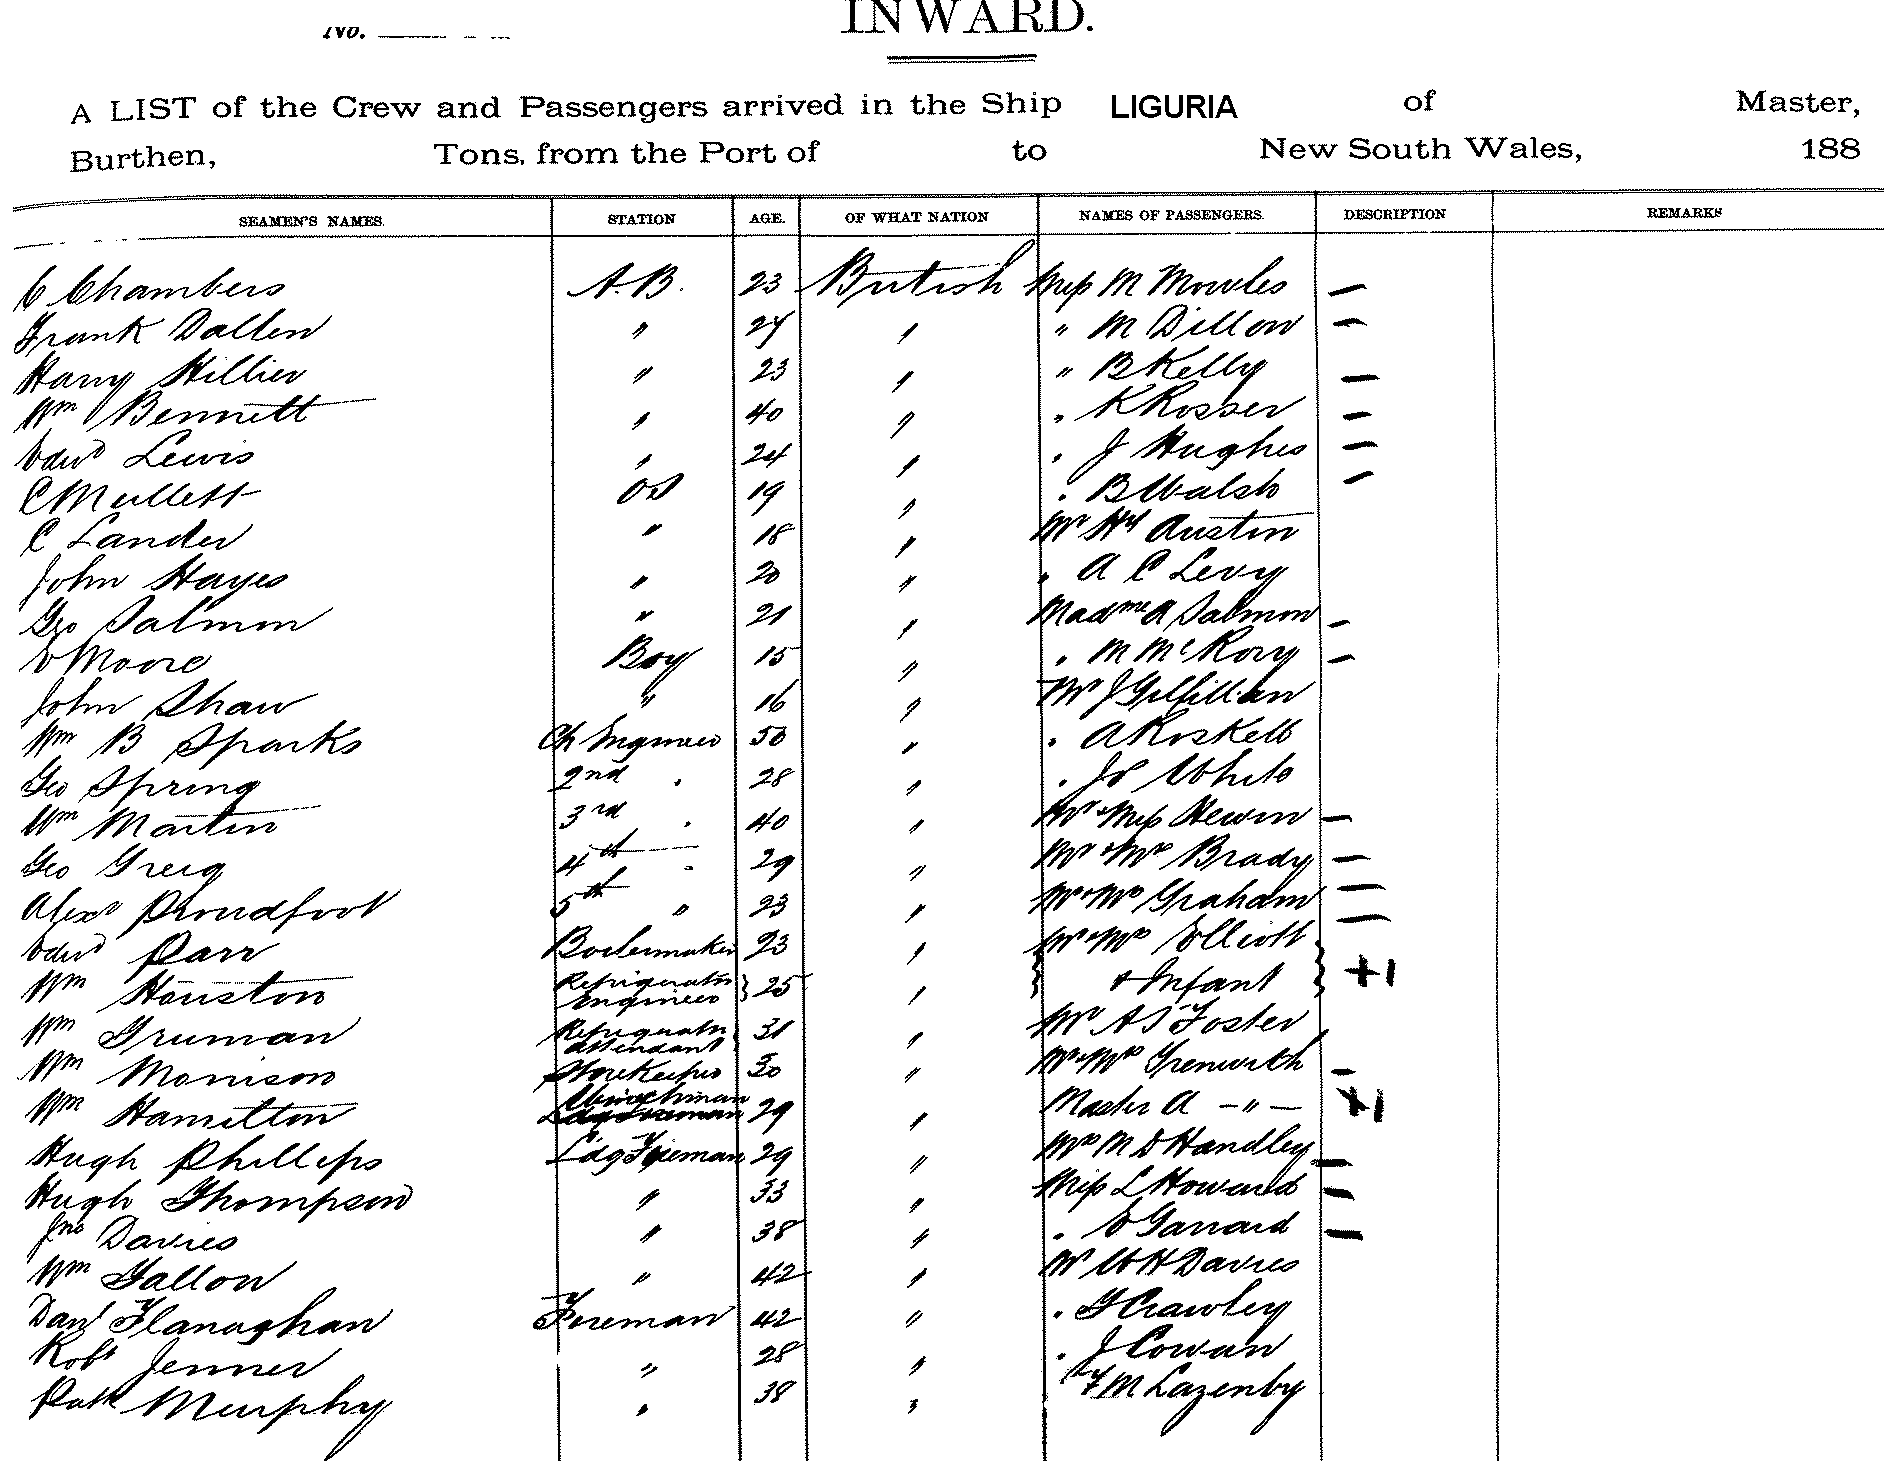 No.
INWARD.
A LIST of the Crew and Passengers arrived in the Ship LIGURIA of Master,
Burthen, Tons, from the Port of to New South Wales, 188
SEAMEN'S NAMES. STATION AGE. OF WHAT NATION NAMES OF PASSENGERS. DESCRIPTION REMARKS
C Chambers A.B. 23 British Miss M Mowles —
Frank Dallen " 24 " " M Dillon —
Harry Hillier " 23 " " B Kelly —
Wm Bennett " 40 " " K Rosser —
Edwd Lewis " 24 " " J Hughes —
C Mullett OS 19 " " B Walsh —
C Lander " 18 " Mr Hy Austin
John Hayes " 20 " " A C Levy
Geo Salmon " 21 " Madme A Salmon —
E Moore Boy 15 " " M McRory —
John Shaw " 16 " Mr J Gilfillan
Wm B Sparks Ch Engineer 50 " " A Roskell
Geo Spring 2nd " 28 " " Js White
Wm Martin 3rd " 40 " Mr & Miss Hewin —
Geo Greig 4th " 29 " Mr & Mrs Brady —
Alexr Proudfoot 5th " 23 " Mr & Mrs Graham —
Edwd Parr Boilermaker 23 " Mr & Mrs Elliott —
Wm Houston Refrigeratr Engineer } 25 " & Infant + 1
Wm Truman Refrigeratr attendant 31 " Mr A S Foster
Wm Morrison Storekeeper 30 " Mr & Mrs Grenwith —
Wm Hamilton Winchman 29 " Master A — " — + 1
Hugh Phillips Ldg Fireman 29 " Mrs M D Handley —
Hugh Thompson " 33 " Miss L Howard —
Jno Davies " 38 " " E Garrard —
Wm Gallon " 42 " Mr W H Davies
Danl Flanaghan Fireman 42 " " G Crawley
Robt Jenner " 28 " " J Cowan
Patk Murphy " 38 " F M Lazenby